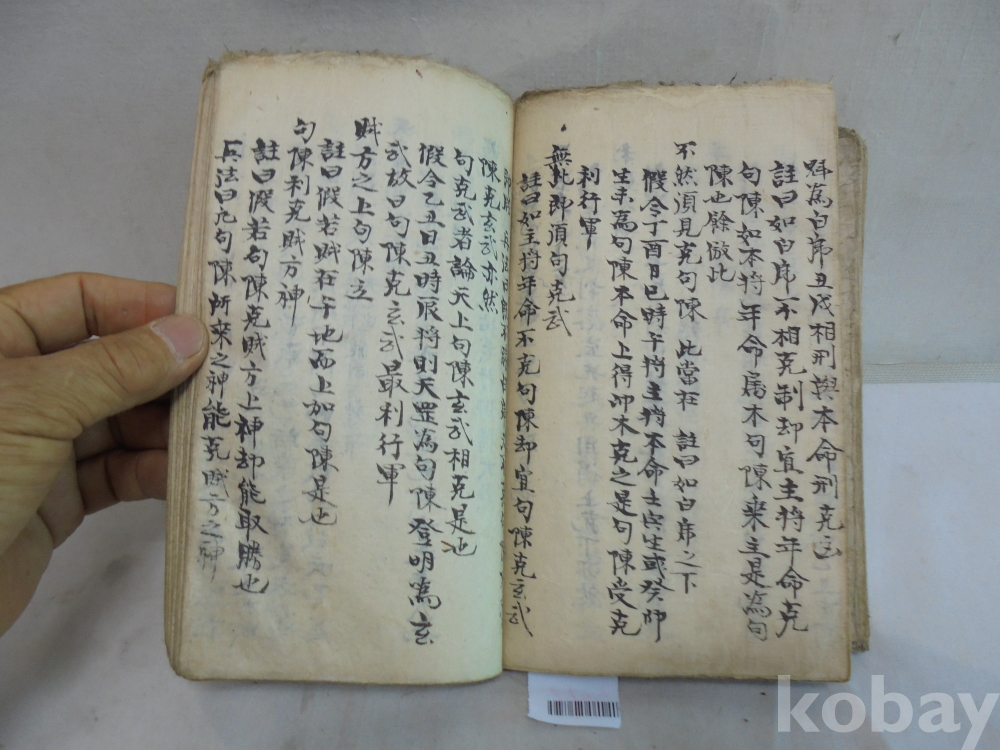 為白虎丑戌相刑與本命刑克
註曰如白虎不相克制却宜主將年命克
句陳如本將年命属木句陳乗土是為句
陳也餘倣此
不然須見克句陳 此當在 註曰如白虎之下
假令丁酉日巳時午將主將本命土與生或癸卯
生未為句陳本命上得卯木克之是句陳受克
利行軍
無此即須句克武
註曰如主將年命不克句陳却宜句陳克玄武
陳克玄武亦然
句克武者論天上句陳玄武相克是也
假令乙丑日丑時辰將則天罡為句陳登明為玄
武故曰句陳克玄武最利行軍
賊方之上句陳立
註曰假若賊在午地而上加句陳是也
句陳利克賊方神
註曰假若句陳克賊方上神却能取勝也
兵法曰凡句陳所來之神能克賊方之神
kobay